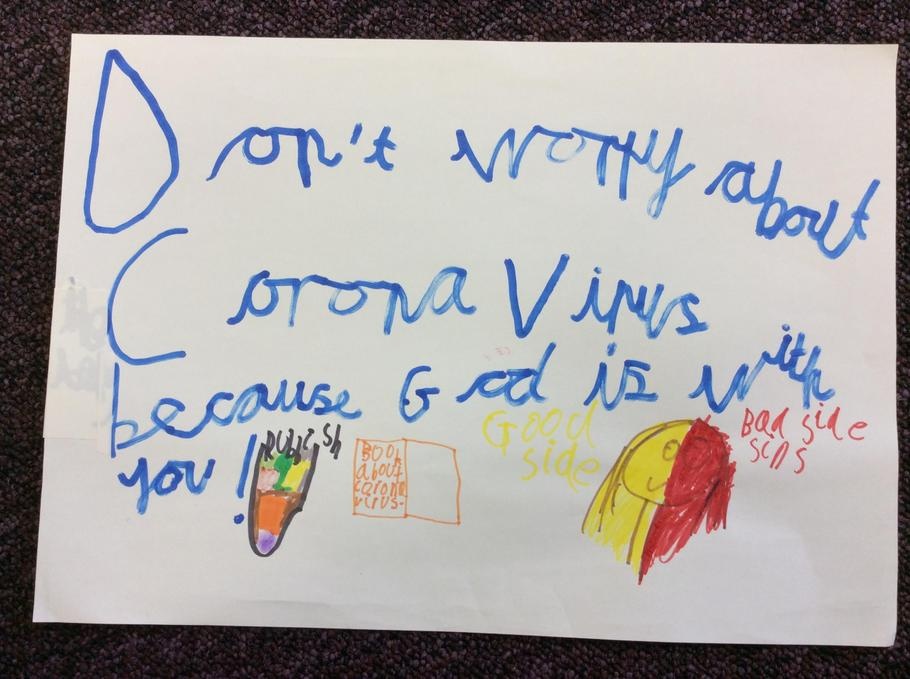 Don't worry about
Corona Virus
because God is with
you!
RUBBISH
BOOk
about
carona
virus-
Good
side
Bad side
sins